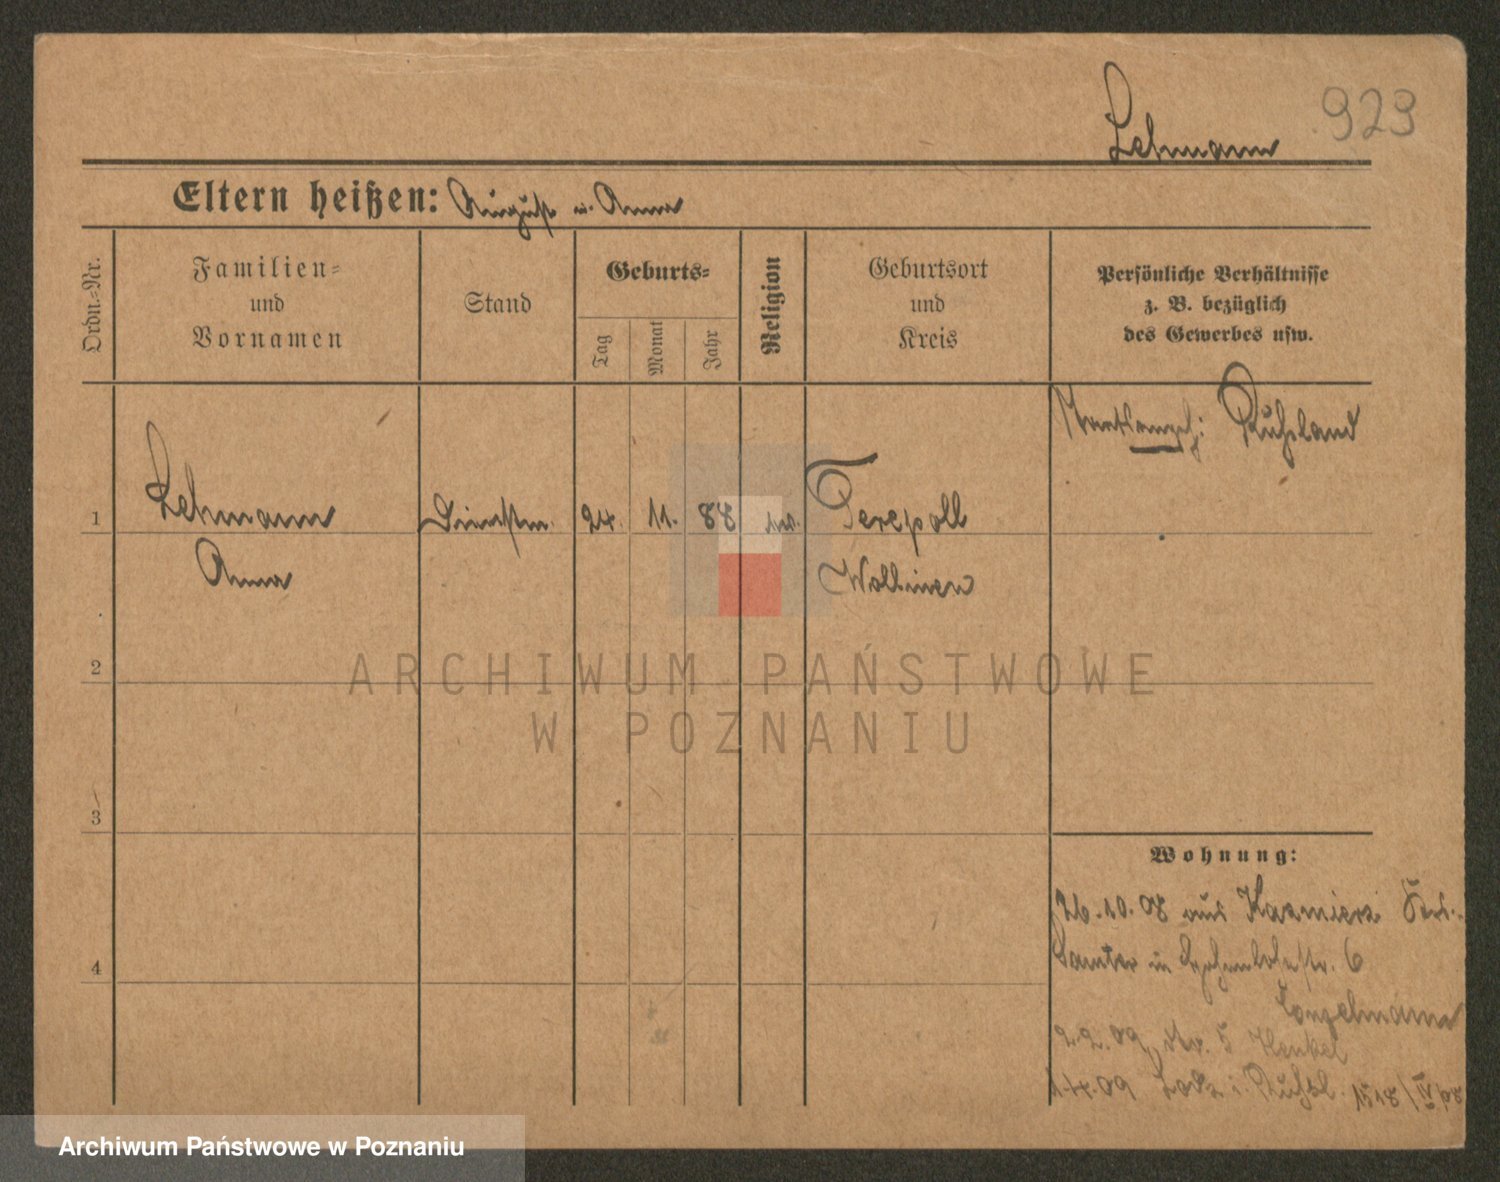 Lehmann
923
Eltern heißen: August u. Anna
Ordn.-Nr.
Familien-
und
Vornamen
Stand
Geburts-
Tag
Monat
Jahr
Religion
Geburtsort
und
Kreis
Persönliche Verhältnisse
z. B. bezüglich
des Gewerbes usw.
Staatsangeh: Rußland
1 Lehmann Dienstm. 24. 11. 88 Terepoll
Anna Wollinien
2
3
4
Wohnung:
26.10.08 aus Kazmierz Krs.
Samter in Hohenlohestr. 6
2.2.09 str. 5 Henkel
1.4.09 Lodz i. Rußl. 1518/IV/08
ARCHIWUM PAŃSTWOWE
W POZNANIU
Archiwum Państwowe w Poznaniu